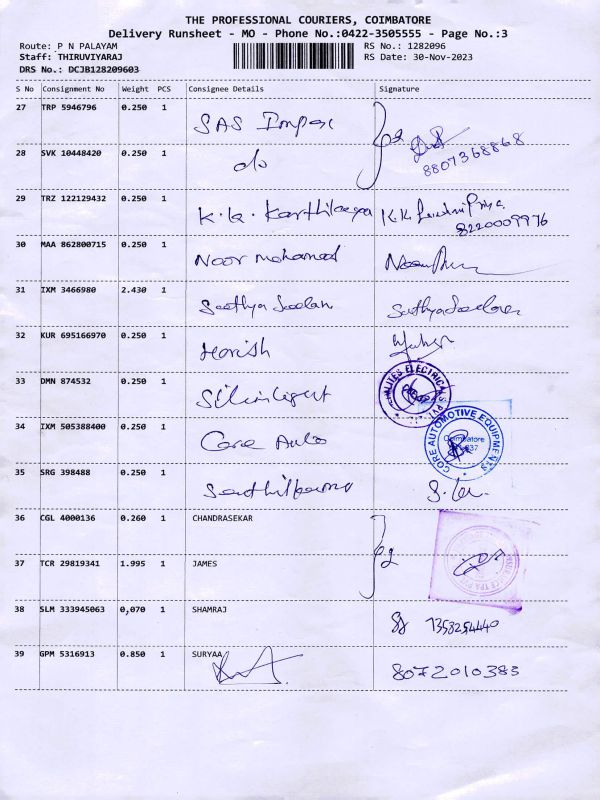 THE PROFESSIONAL COURIERS, COIMBATORE
Delivery Runsheet - MO - Phone No.:0422-3505555 - Page No.:3
Route: P N PALAYAM RS No.: 1282096
Staff: THIRUVIYARAJ RS Date: 30-Nov-2023
DRS No.: DCJB128209603
S No Consignment No Weight PCS Consignee Details Signature
27 TRP 5946796 0.250 1 SAS Impex
8807368868
28 SVK 10448420 0.250 1 do
29 TRZ 122129432 0.250 1 K.K. Karthikeya K.K.
8220009976
30 MAA 862800715 0.250 1 Noor mohamad
31 IXM 3466980 2.430 1 Sathya Seelan Sathya Seelan
32 KUR 695166970 0.250 1 Harish
33 DMN 874532 0.250 1
ELECTRICAL
34 IXM 505388400 0.250 1 Core Auto
CORE AUTOMOTIVE EQUIPMENTS
Coimbatore
35 SRG 398488 0.250 1 Senthilkumar
36 CGL 4000136 0.260 1 CHANDRASEKAR
37 TCR 29819341 1.995 1 JAMES
38 SLM 333945063 0,070 1 SHAMRAJ 7358254440
39 GPM 5316913 0.850 1 SURYAA 8072010383